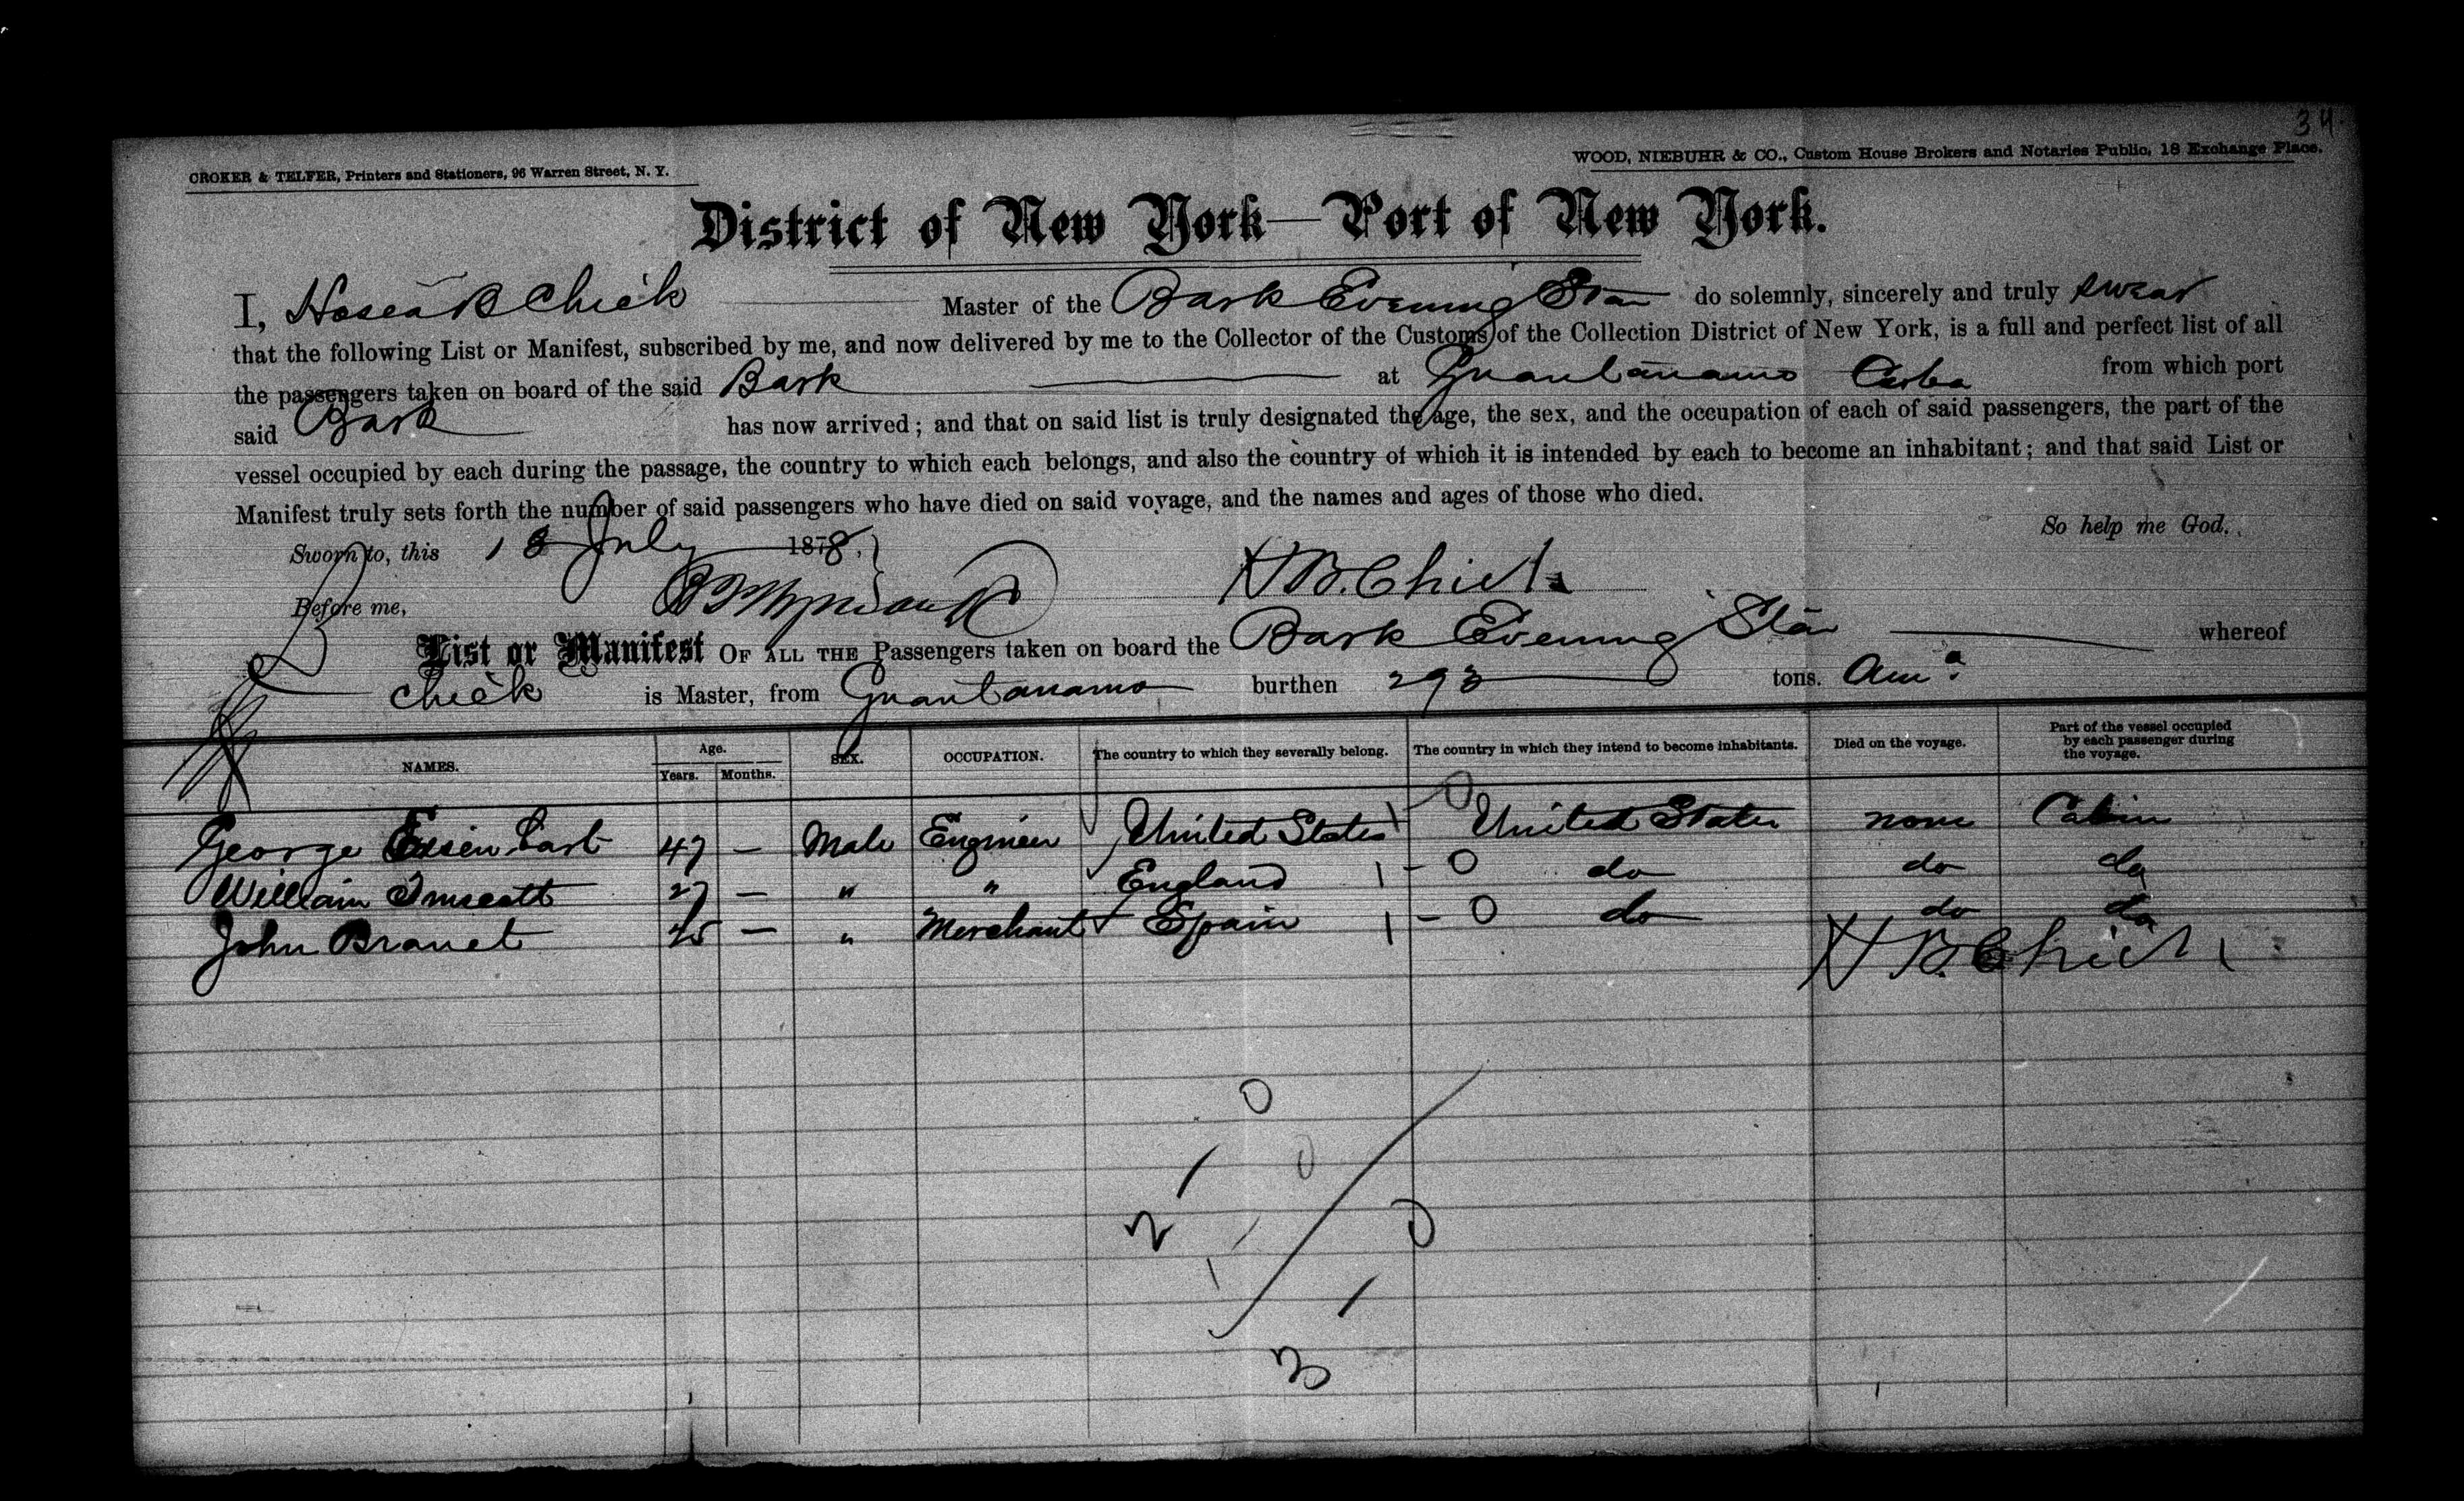 34
CROKER & TELFER, Printers and Stationers, 96 Warren Street, N. Y.
WOOD, NIEBUHR & CO., Custom House Brokers and Notaries Public, 18 Exchange Place.
District of New York—Port of New York.
I, Hosea B Chick Master of the Bark Evening Star do solemnly, sincerely and truly swear
that the following List or Manifest, subscribed by me, and now delivered by me to the Collector of the Customs of the Collection District of New York, is a full and perfect list of all
the passengers taken on board of the said Bark at Guantanamo Cuba from which port
said Bark has now arrived; and that on said list is truly designated the age, the sex, and the occupation of each of said passengers, the part of the
vessel occupied by each during the passage, the country to which each belongs, and also the country of which it is intended by each to become an inhabitant; and that said List or
Manifest truly sets forth the number of said passengers who have died on said voyage, and the names and ages of those who died.
So help me God.
Sworn to, this 18 July 1878.
Before me, H B. Chick
List or Manifest OF ALL THE Passengers taken on board the Bark Evening Star whereof
Chick is Master, from Guantanamo burthen 293 tons. Am.
NAMES. Age. Years. Months. SEX. OCCUPATION. The country to which they severally belong. The country in which they intend to become inhabitants. Died on the voyage. Part of the vessel occupied by each passenger during the voyage.
George 47 — Male Engineer United States 1 - 0 United States none Cabin
William 27 — " " England 1 - 0 do do do
John Branet — " Merchant Spain 1 - 0 do do do
H B. Chick
0
1 0
2 0
1
3